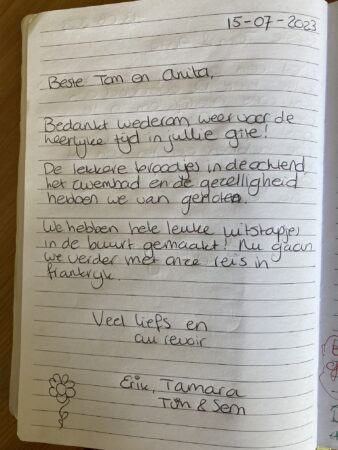 15-07-2023
Beste Tom en Anita,
Bedankt wederom weer voor de
heerlijke tijd in jullie gite!
De lekkere broodjes in de ochtend,
het zwembad en de gezelligheid
hebben we van genoten.
We hebben hele leuke uitstapjes
in de buurt gemaakt! Nu gaan
we verder met onze reis in
frankrijk.
Veel liefs en
au revoir
Erik, Tamara
Tim & Sem